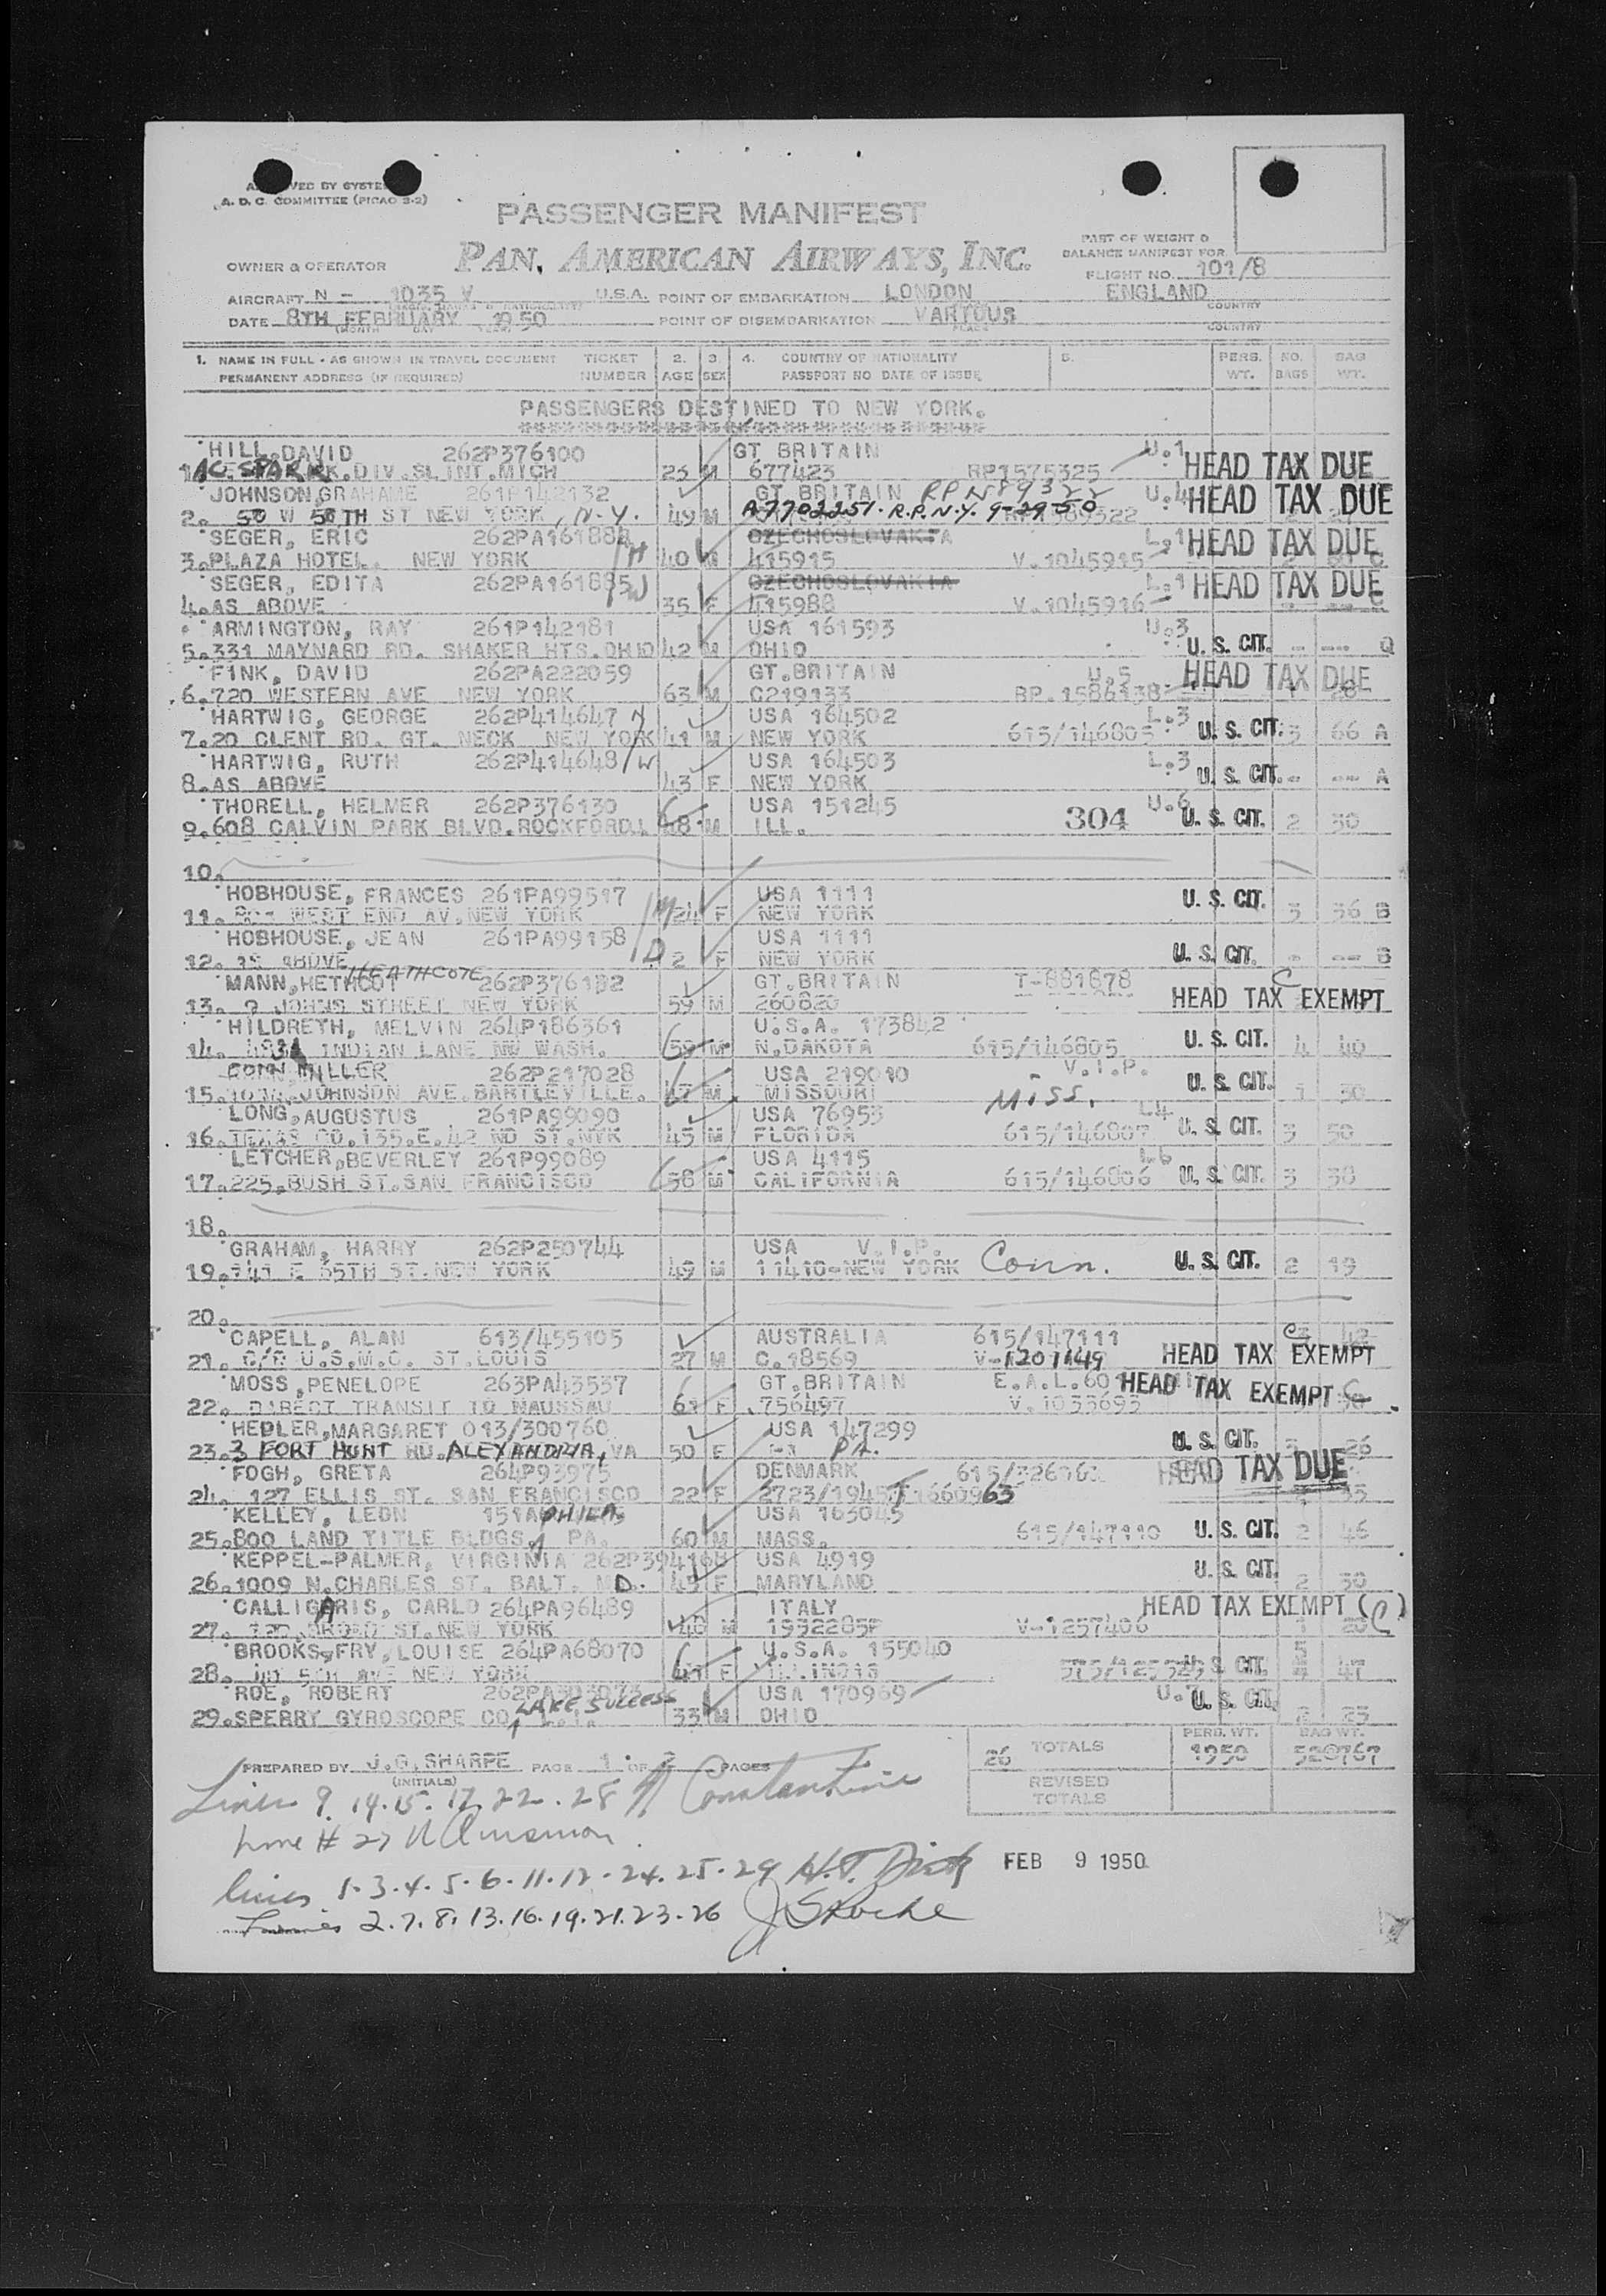 A. D. C. COMMITTEE (PICAO 3-2)
PASSENGER MANIFEST
PAN AMERICAN AIRWAYS, INC.
OWNER & OPERATOR
PART OF WEIGHT &
BALANCE MANIFEST FOR
FLIGHT NO. 101/8
AIRCRAFT N - 1035 V U.S.A. POINT OF EMBARKATION LONDON ENGLAND COUNTRY
DATE 8TH FEBRUARY 1950 POINT OF DISEMBARKATION VARIOUS COUNTRY
1. NAME IN FULL - AS SHOWN IN TRAVEL DOCUMENT TICKET 2. 3. 4. COUNTRY OF NATIONALITY 5. PERS. NO. BAG
PERMANENT ADDRESS (IF REQUIRED) NUMBER AGE SEX PASSPORT NO. DATE OF ISSUE WT. BAGS WT.
PASSENGERS DESTINED TO NEW YORK.
HILL, DAVID 262P376100 GT BRITAIN U.1 HEAD TAX DUE
1. AC SPARK DIV. SLINT. MICH 23 M 677423 RP1575325
JOHNSON, GRAHAME 261P142132 GT BRITAIN U.4 HEAD TAX DUE
2. 50 W 58TH ST NEW YORK, N.Y. 49 M A7702251. R.P. N.Y. 9-29-50
SEGER, ERIC 262PA161884 CZECHOSLOVAKIA L.1 HEAD TAX DUE
3. PLAZA HOTEL. NEW YORK H 40 M 415915 V.1045915
SEGER, EDITA 262PA161885 W CZECHOSLOVAKIA L.1 HEAD TAX DUE
4. AS ABOVE 35 F 415988 V.1045916 C
ARMINGTON, RAY 261P142181 USA 161593 U.3
5. 331 MAYNARD RD. SHAKER HTS. OHIO 42 M OHIO U. S. CIT. - -- Q
FINK, DAVID 262PA222059 GT.BRITAIN U.5 HEAD TAX DUE
6. 720 WESTERN AVE NEW YORK 63 M C219133 RP.1586138 1 28
HARTWIG, GEORGE 262P414647 USA 164502 L.3
7. 20 CLENT RD. GT. NECK NEW YORK 41 M NEW YORK 615/146805 U. S. CIT. 3 66 A
HARTWIG, RUTH 262P414648 W USA 164503 L.3
8. AS ABOVE 43 F NEW YORK U. S. CIT. - -- A
THORELL, HELMER 262P376130 USA 151245 U.6
9. 608 CALVIN PARK BLVD. ROCKFORD 48 M ILL. 304 U. S. CIT. 2 30
10.
HOBHOUSE, FRANCES 261PA99517 USA 1111 U. S. CIT.
11. WEST END AV. NEW YORK M 24 F NEW YORK 3 36 B
HOBHOUSE, JEAN 261PA99158 USA 1111
12. AS ABOVE D 2 F NEW YORK U. S. CIT. - -- B
MANN, HETHCOT HEATHCOTE 262P376132 GT.BRITAIN T-881878 C
13. 9 JOHNS STREET NEW YORK 59 M 260820 HEAD TAX EXEMPT
HILDRETH, MELVIN 264P186361 U.S.A. 173842
14. INDIAN LANE NW WASH. 59 M N.DAKOTA 615/146805 U. S. CIT. 4 40
CONN, MILLER 262P217028 USA 219010 V.I.P.
15. JOHNSON AVE. BARTLEVILLE. 47 M MISSOURI MISS. U. S. CIT. 1 30
LONG, AUGUSTUS 261PA99090 USA 76953 L4
16. TEXAS CO. 135. E. 42 ND ST. NYK 45 M FLORIDA 615/146807 U. S. CIT. 3 50
LETCHER, BEVERLEY 261P99089 USA 4115 L6
17. 225, BUSH ST. SAN FRANCISCO 58 M CALIFORNIA 615/146806 U. S. CIT. 3 30
18.
GRAHAM, HARRY 262P250744 USA V.I.P.
19. 141 E 65TH ST. NEW YORK 49 M 11410-NEW YORK Conn. U. S. CIT. 2 19
20.
CAPELL, ALAN 613/455105 AUSTRALIA 615/147111
21. C/O U.S.M.C. ST.LOUIS 27 M C.18569 V-1201149 HEAD TAX EXEMPT
MOSS, PENELOPE 263PA43537 GT.BRITAIN HEAD TAX EXEMPT
22. DIRECT TRANSIT TO NAUSSAU 61 F 756497 V.1033693
HEDLER, MARGARET 013/300760 USA 147299
23. 3 FORT HUNT RD. ALEXANDRIA, VA 50 F PA. U. S. CIT. 26
FOGH, GRETA 264P93975 DENMARK HEAD TAX DUE
24. 127 ELLIS ST. SAN FRANCISCO 22 F
KELLEY, LEON PHILA. USA 163045
25. 800 LAND TITLE BLDGS. PA. 60 M MASS. 615/147110 U. S. CIT. 2 46
KEPPEL-PALMER, VIRGINIA USA 4919 U. S. CIT.
26. 1009 N.CHARLES ST. BALT. MD. 45 F MARYLAND 2 30
CALLIGARIS, CARLO 264PA96489 ITALY HEAD TAX EXEMPT (C)
27. BROAD ST. NEW YORK 40 M 1932285P V-1257406
BROOKS, FRY, LOUISE 264PA68070 U.S.A. 155040
28. 5TH AVE NEW YORK 41 F ILLINOIS U. S. CIT. 47
ROE, ROBERT USA 170969 U.7
29. SPERRY GYROSCOPE CO, LAKE SUCCESS 33 M OHIO U. S. CIT. 2 23
26 TOTALS PERS. WT. 1950 BAG WT.
REVISED TOTALS
PREPARED BY J.G.SHARPE PAGE 1 OF 2 PAGES
(INITIALS)
Lines 9. 14. 15. 17. 22. 28 Constantine
Line # 27
lines 1. 3. 4. 5. 6. 11. 12. 24. 25. 29
FEB 9 1950
2. 7. 8. 13. 16. 19. 21. 23. 26